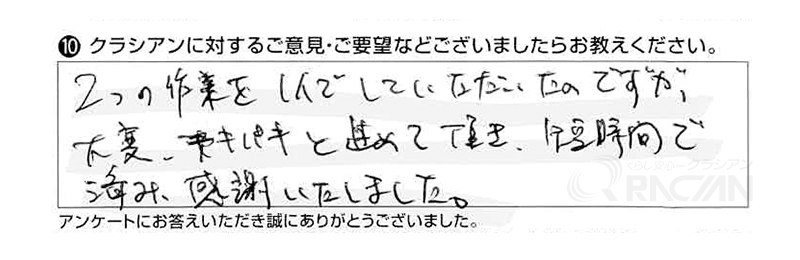 ⑩ クラシアンに対するご意見・ご要望などございましたらお教えください。
2つの作業を1人でしていただいたのですが、
大変、テキパキと進めて頂き、短時間で
済み、感謝いたしました。
くらし安心クラシアン
QRACIAN
アンケートにお答えいただき誠にありがとうございました。